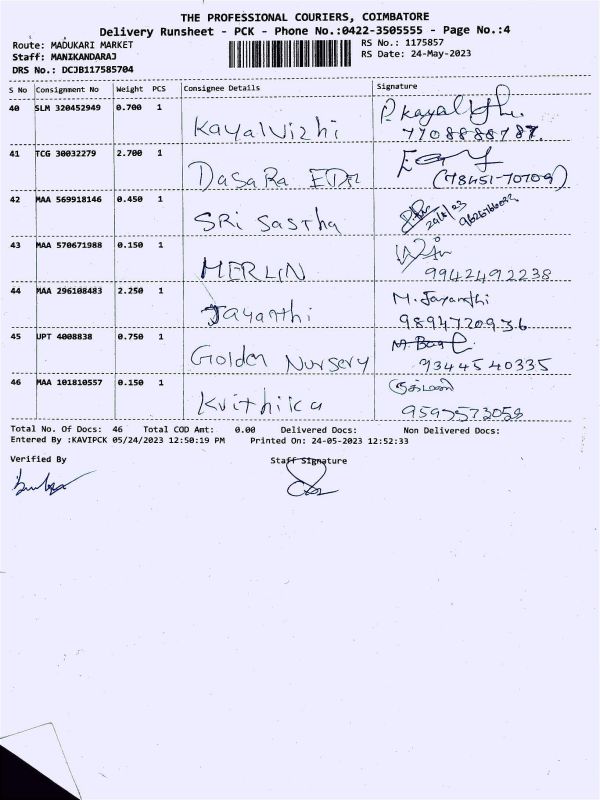 THE PROFESSIONAL COURIERS, COIMBATORE
Delivery Runsheet - PCK - Phone No.:0422-3505555 - Page No.:4
Route: MADUKARI MARKET
RS No.: 1175857
Staff: MANIKANDARAJ
RS Date: 24-May-2023
DRS No.: DCJB117585704
S No Consignment No Weight PCS Consignee Details Signature
40 SLM 320452949 0.700 1 Kayalvizhi 7708888787.
41 TCG 30032279 2.700 1 DaSaRa (98451-70709)
42 MAA 569918146 0.450 1 SRi Sastha
43 MAA 570671988 0.150 1 MERLIN 9942492238
44 MAA 296108483 2.250 1 Jayanthi M. Jayanthi
9894720936
45 UPT 4008838 0.750 1 Golden Nursery 9344540335
46 MAA 101810557 0.150 1 Krithika 9597573058
Total No. Of Docs: 46 Total COD Amt: 0.00 Delivered Docs: Non Delivered Docs:
Entered By :KAVIPCK 05/24/2023 12:50:19 PM Printed On: 24-05-2023 12:52:33
Verified By Staff Signature